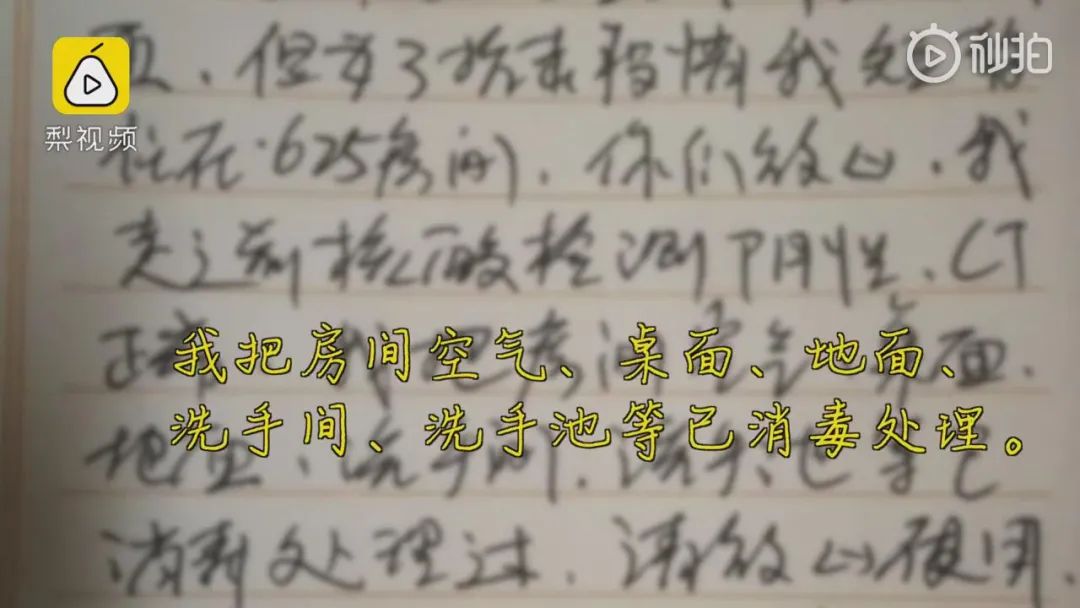 梨视频
秒拍
但为了
住在625房间. 你们放心. 我
走之前核酸检测阴性、CT
正常
地面、洗手间、洗手池等已
消毒处理过. 请放心使用.
我把房间空气、桌面、地面、
洗手间、洗手池等已消毒处理。